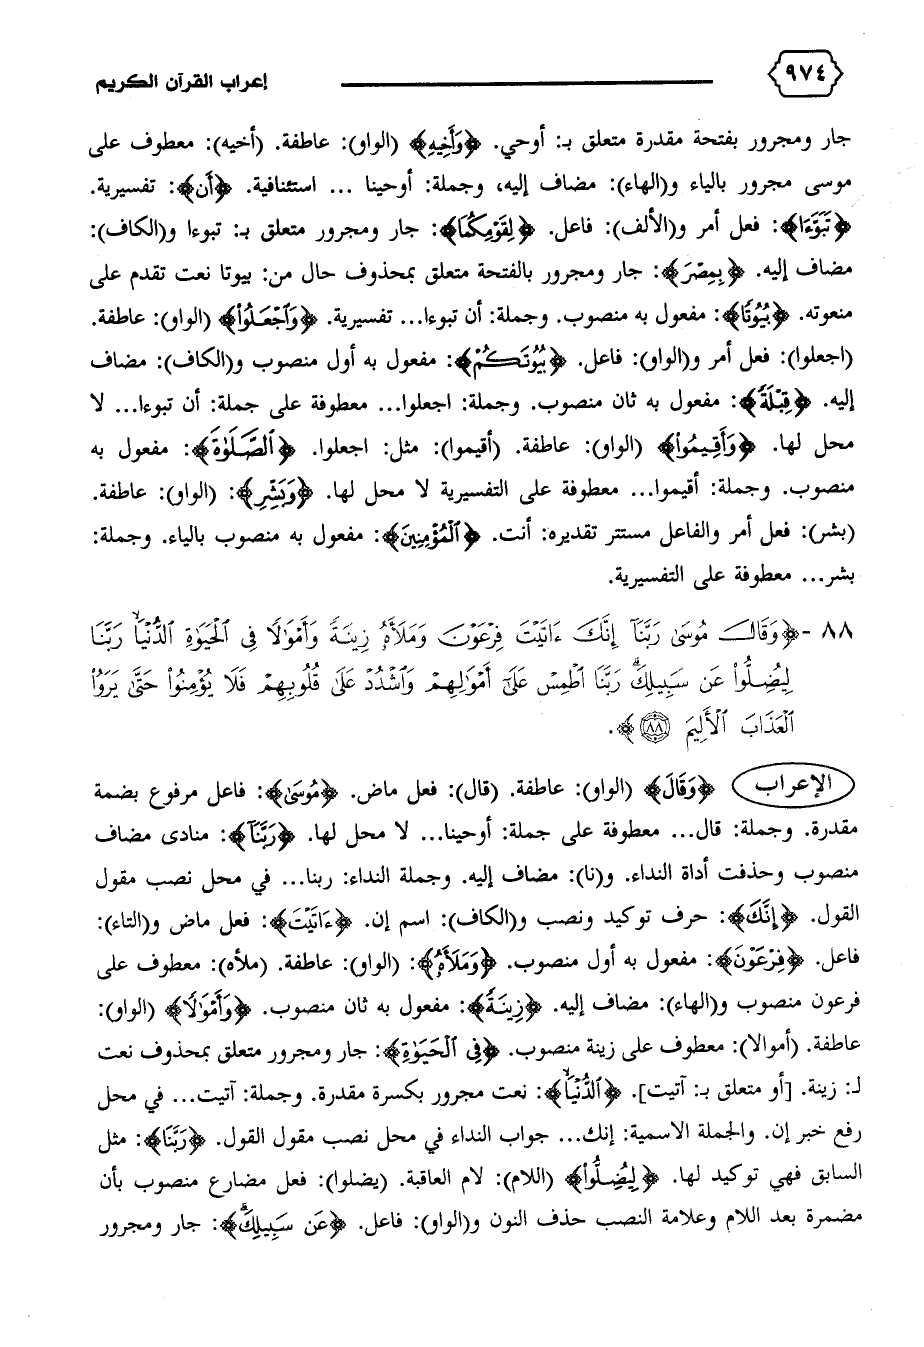 ٩٧٤ إعراب القرآن الكريم
جار ومجرور بفتحة مقدرة متعلق بـ: أوحي. ﴿وَأَخِيهِ﴾ (الواو): عاطفة. (أخيه): معطوف على
موسى مجرور بالياء و(الهاء): مضاف إليه، وجملة: أوحينا ... استئنافية. ﴿أَن﴾: تفسيرية.
﴿تَبَوَّءَا﴾: فعل أمر و(الألف): فاعل. ﴿لِقَوْمِكُمَا﴾: جار ومجرور متعلق بـ: تبوءا و(الكاف):
مضاف إليه. ﴿بِمِصْرَ﴾: جار ومجرور بالفتحة متعلق بمحذوف حال من: بيوتا نعت تقدم على
منعوته. ﴿بُيُوتًا﴾: مفعول به منصوب. وجملة: أن تبوءا... تفسيرية. ﴿وَٱجْعَلُوا۟﴾ (الواو): عاطفة.
(اجعلوا): فعل أمر و(الواو): فاعل. ﴿بُيُوتَكُمْ﴾: مفعول به أول منصوب و(الكاف): مضاف
إليه. ﴿قِبْلَةً﴾: مفعول به ثان منصوب. وجملة: اجعلوا... معطوفة على جملة: أن تبوءا... لا
محل لها. ﴿وَأَقِيمُوا۟﴾ (الواو): عاطفة. (أقيموا): مثل: اجعلوا. ﴿ٱلصَّلَوٰةَ﴾: مفعول به
منصوب. وجملة: أقيموا... معطوفة على التفسيرية لا محل لها. ﴿وَبَشِّرِ﴾: (الواو): عاطفة.
(بشر): فعل أمر والفاعل مستتر تقديره: أنت. ﴿ٱلْمُؤْمِنِينَ﴾: مفعول به منصوب بالياء. وجملة:
بشر... معطوفة على التفسيرية.
٨٨ -﴿وَقَالَ مُوسَىٰ رَبَّنَآ إِنَّكَ ءَاتَيْتَ فِرْعَوْنَ وَمَلَأَهُۥ زِينَةً وَأَمْوَٰلًا فِى ٱلْحَيَوٰةِ ٱلدُّنْيَا ۙ رَبَّنَا
لِيُضِلُّوا۟ عَن سَبِيلِكَ ۖ رَبَّنَا ٱطْمِسْ عَلَىٰٓ أَمْوَٰلِهِمْ وَٱشْدُدْ عَلَىٰ قُلُوبِهِمْ فَلَا يُؤْمِنُوا۟ حَتَّىٰ يَرَوُا۟
ٱلْعَذَابَ ٱلْأَلِيمَ ٨٨﴾.
الإعراب ﴿وَقَالَ﴾ (الواو): عاطفة. (قال): فعل ماض. ﴿مُوسَىٰ﴾: فاعل مرفوع بضمة
مقدرة. وجملة: قال... معطوفة على جملة: أوحينا... لا محل لها. ﴿رَبَّنَآ﴾: منادى مضاف
منصوب وحذفت أداة النداء. و(نا): مضاف إليه. وجملة النداء: ربنا... في محل نصب مقول
القول. ﴿إِنَّكَ﴾: حرف توكيد ونصب و(الكاف): اسم إن. ﴿ءَاتَيْتَ﴾: فعل ماض و(التاء):
فاعل. ﴿فِرْعَوْنَ﴾: مفعول به أول منصوب. ﴿وَمَلَأَهُۥ﴾: (الواو): عاطفة. (ملأه): معطوف على
فرعون منصوب و(الهاء): مضاف إليه. ﴿زِينَةً﴾: مفعول به ثان منصوب. ﴿وَأَمْوَٰلًا﴾ (الواو):
عاطفة. (أموالا): معطوف على زينة منصوب. ﴿فِى ٱلْحَيَوٰةِ﴾: جار ومجرور متعلق بمحذوف نعت
لـ: زينة. [أو متعلق بـ: آتيت]. ﴿ٱلدُّنْيَا ۙ﴾: نعت مجرور بكسرة مقدرة. وجملة: آتيت... في محل
رفع خبر إن. والجملة الاسمية: إنك... جواب النداء في محل نصب مقول القول. ﴿رَبَّنَا﴾: مثل
السابق فهي توكيد لها. ﴿لِيُضِلُّوا۟﴾ (اللام): لام العاقبة. (يضلوا): فعل مضارع منصوب بأن
مضمرة بعد اللام وعلامة النصب حذف النون و(الواو): فاعل. ﴿عَن سَبِيلِكَ ۖ﴾: جار ومجرور